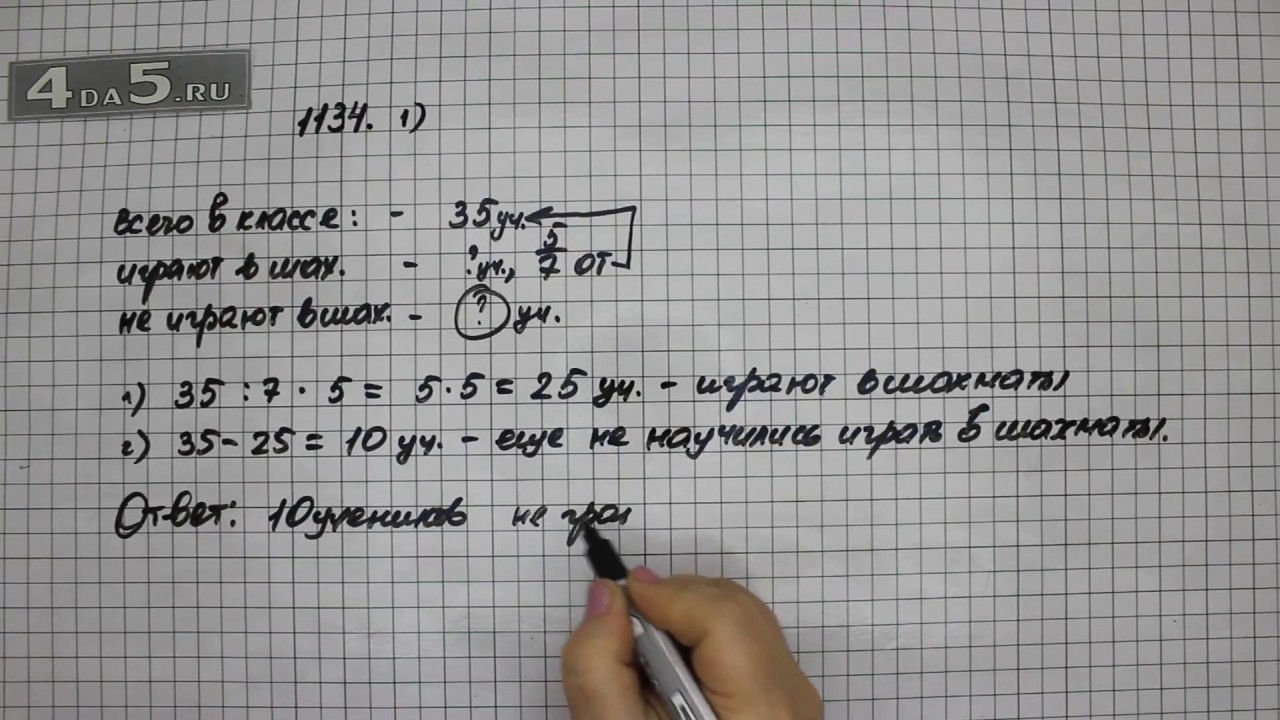 4DA5.RU
1134. 1)
всего в классе: - 35 уч.
играют в шах. - ? уч., 5/7 от
не играют в шах. - ? уч.
1) 35 : 7 · 5 = 5 · 5 = 25 уч. - играют в шахматы
2) 35 - 25 = 10 уч. - еще не научились играть в шахматы.
Ответ: 10 учеников не